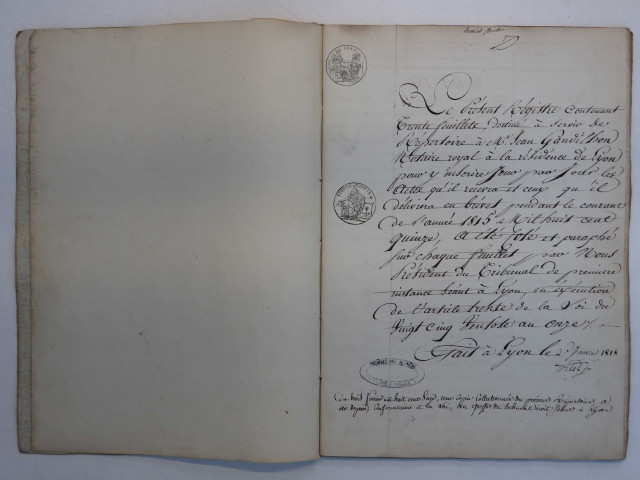 Le Présent Régistre contenant
trente feuillets, destiné à servir de
Repertoire à Mr. Jean
Notaire royal à la résidence de Lyon
pour y inscrire Jour par Jour les
actes qu'il recevra et ceux qu'il
délivrera en brévet pendant le courant
de l'année 1815 Mil huit cent
quinze, a été coté et paraphé
sur chaque feuillet, par Nous
Président du Tribunal de première
instance séant à Lyon, en exécution
de l'article trente de la Loi du
Vingt cinq Ventose an onze /.
Fait à Lyon le 2 Janvier 1815
une copie collationnée du présent Répertoire a
conformement à la loi, au greffe du tribunal civil, à Lyon